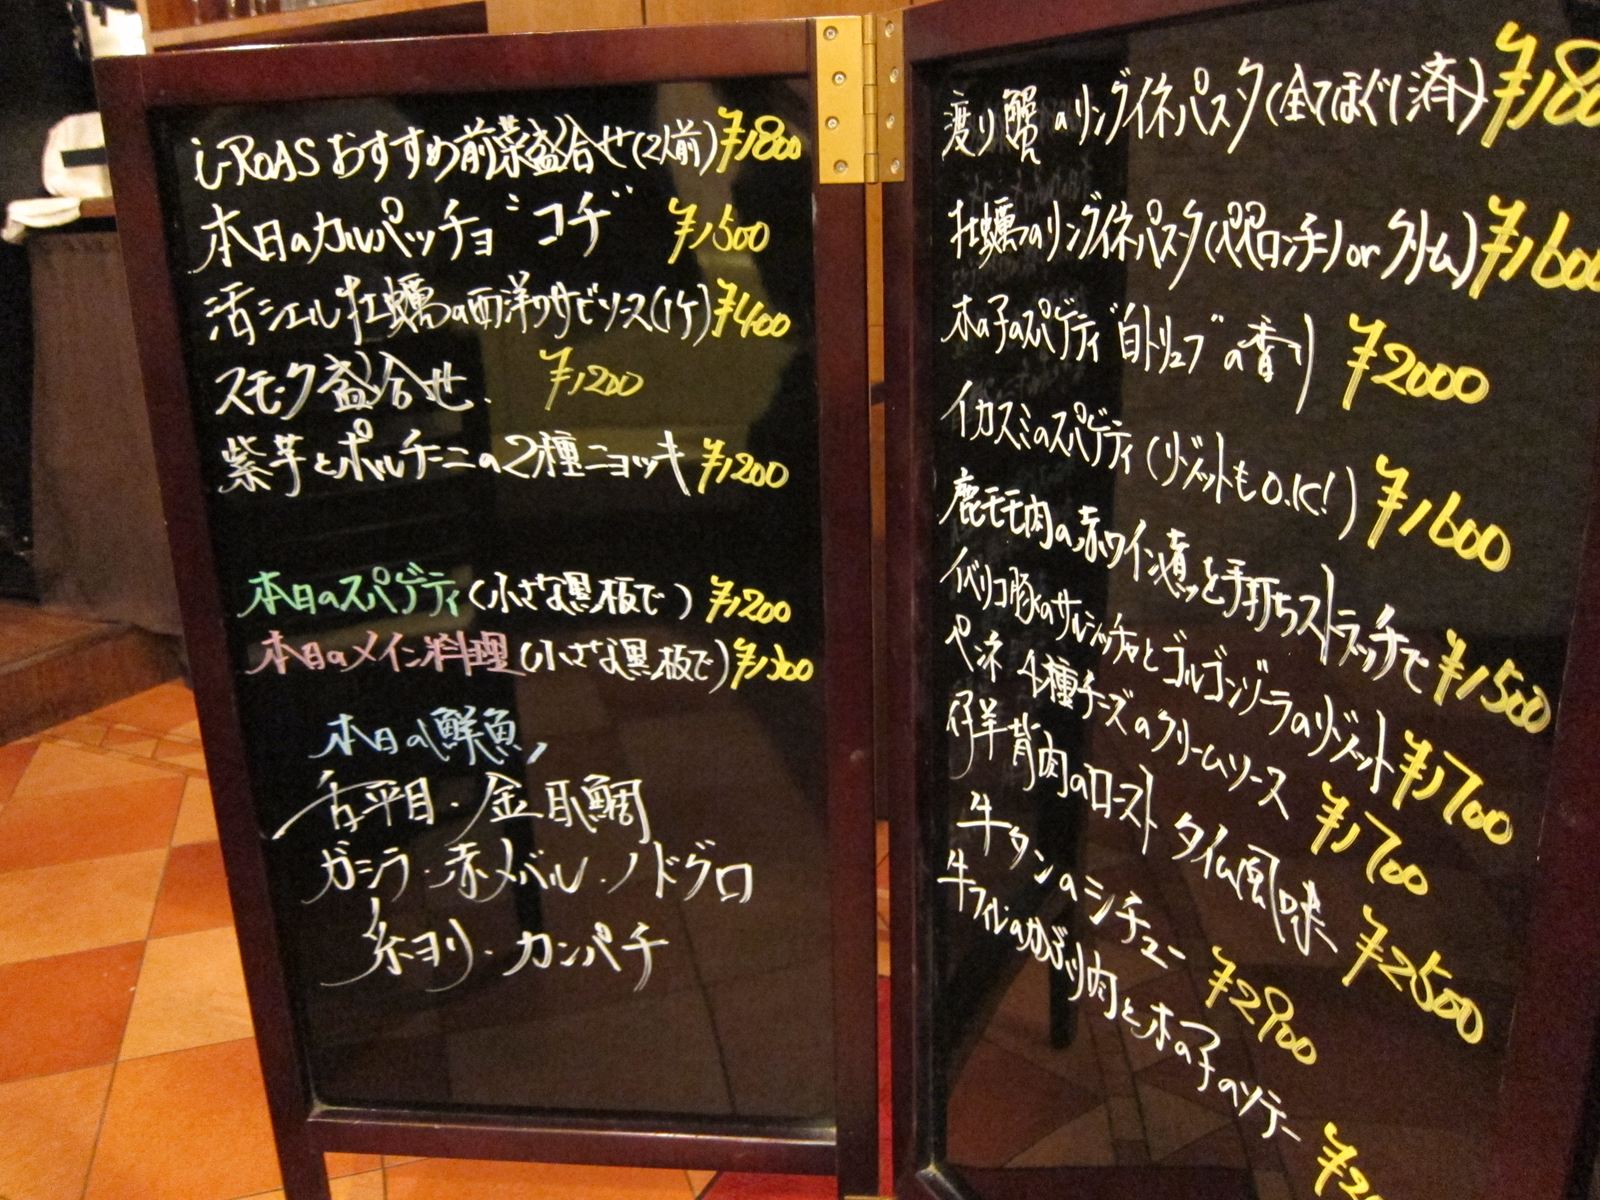 i-ROAS おすすめ前菜盛合せ(2人前) ¥1800
本日のカルパッチョ “コチ” ¥1500
活シェル牡蠣の西洋ワサビソース(1ケ) ¥400
スモーク盛合せ. ¥1200
紫芋とポルチーニの2種ニョッキ ¥1200
本日のスパゲティ(小さな黒板で) ¥1200
本日のメイン料理(小さな黒板で)
本日の鮮魚
舌平目・金目鯛
ガシラ・赤メバル・ノドグロ
糸ヨリ・カンパチ
渡り蟹のリングイネパスタ(全てほぐし済)
牡蠣のリングイネパスタ(ペペロンチーノorクリーム) ¥1600
木の子のスパゲティ“白トリュフ”の香り ¥2000
イカスミのスパゲティ(リゾットもO.K!) ¥1600
鹿モモ肉の赤ワイン煮と手打ちストラッチで ¥1500
イベリコ豚のサルシッチャとゴルゴンゾーラのリゾット ¥1700
ペンネ 4種チーズのクリームソース ¥1700
仔羊背肉のロースト タイム風味 ¥2500
牛タンのシチュー ¥2900
牛フィレのかぶり肉と木の子のソテー